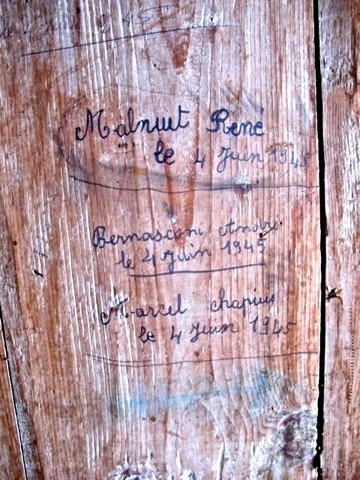 Malnuit René
le 4 Juin 1945
Bernasconi André
le 4 Juin 1945
Marcel chapius
le 4 Juin 1945